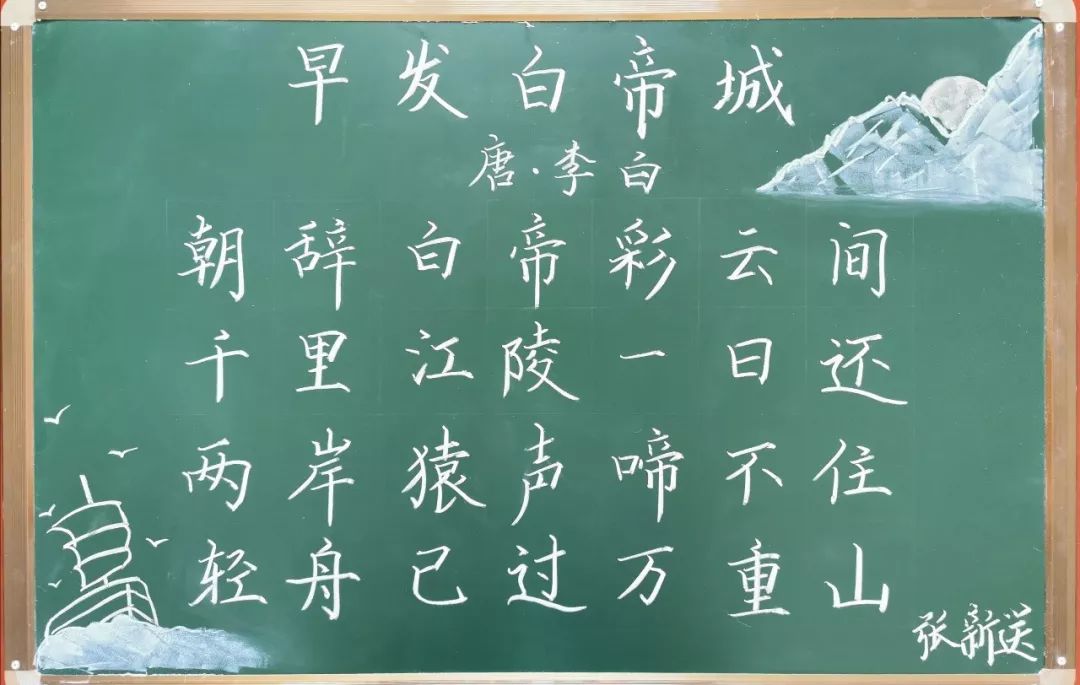 早发白帝城
唐·李白
朝辞白帝彩云间
千里江陵一日还
两岸猿声啼不住
轻舟已过万重山
张新送